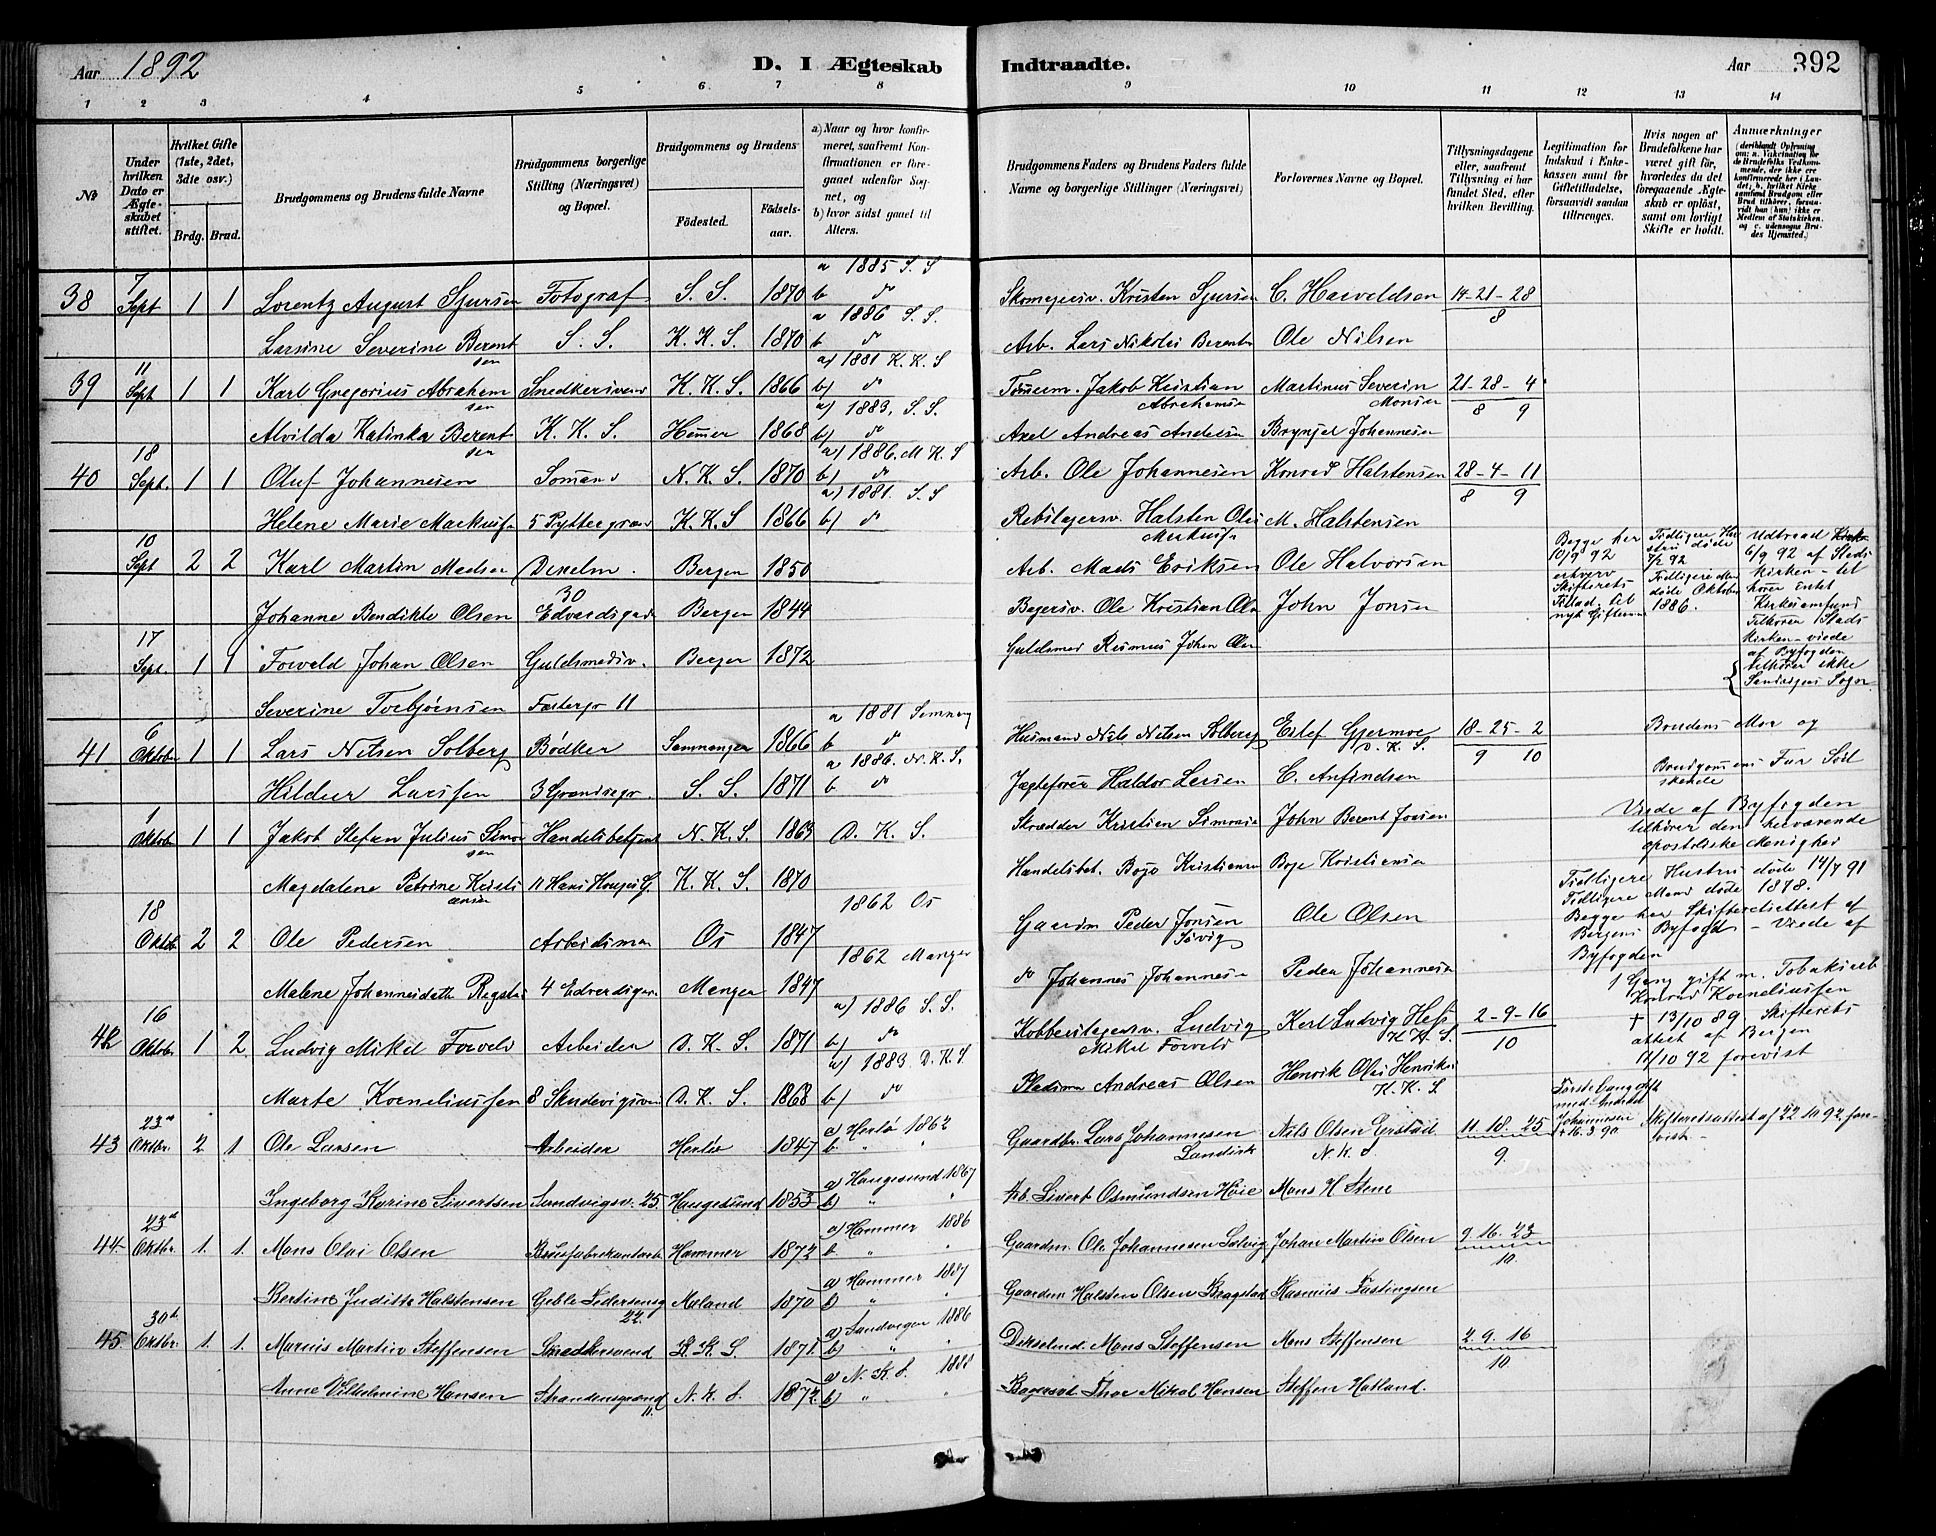 Aar 1892 D. I Ægteskab Indtraadte. Aar 392
1 2 3 4 5 6 7 8 9 10 11 12 13 14
№
Under hvilken Dato er Ægteskabet stiftet.
Hvilket Gifte (1ste, 2det, 3die osv.)
Brdg. Brud.
Brudgommens og Brudens fulde Navne
Brudgommens borgerlige Stilling (Næringsvei) og Bopæl.
Brudgommens og Brudens
Födested. Födselsaar.
a) Naar og hvor konfirmeret, saafremt Konfirmationen er foregaaet udenfor Sognet, og
b) hvor sidst gaaet til Alters.
Brudgommens Faders og Brudens Faders fulde Navne og borgerlige Stillinger (Næringsvei)
Forlovernes Navne og Bopæl.
Tillysningsdagene eller, saafremt Tillysning ei har fundet Sted, efter hvilken Bevilling.
Legitimation for Indskud i Enkekassen samt for Giftetilladelse, forsaavidt saadan tiltrænges.
Hvis nogen af Brudefolkene har været gift för, hvorledes da det foregaaende Ægteskab er oplöst, samt om lovligt Skifte er holdt.
Anmærkninger (deriblandt Opfösning om: a. Vakcination for de Brudefolks Vedkommende, der ikke ere konfirmerede her i Landet; b. hvilket Kirkesamfund Brudgom eller Brud tilhörer, forsaavidt han (hun) ikke er Medlem af Statskirken, og c. udensogns Brudes Hjemsted.)
38 7 Sept 1 1 Lorentz August Sjursen Fotograf S. S. 1870 a 1885 S. S b do Skomagersv. Kristen Sjursen C. Harveldsen 14-21-28 8
Larsine Severine Berentsen S. S. K. K. S. 1870 a 1886 S. S. b do Arb. Lars Nikolai Berents Ole Nilsen
39 11 Sept 1 1 Karl Gregorius Abrahamsen Snedkersvend K. K. S. 1866 a) 1881 K. K. S b) do Tømerm. Jakob Kristian Abrahamsen Martinus Severin Monsen 21-28-4 8 9
Alvilda Kalinka Berentsen K. K. S. Hammer 1868 a) 1883. S. S. b) do Axel Andreas Andersen Brynjel Johannesen
40 18 Sept. 1 1 Oluf Johannesen Sömand N. K. S. 1870 a) 1886. M K. S b) do Arb. Ole Johannesen Konrad Halstensen 28-4-11 8 9
Helene Marie Markusn 5 Pyttergrand K. K. S 1866 a) 1881. S. S b) do Rebslagersv. Halsten Olai Markusn M. Halstensen
10 Sept 2 2 Karl Martin Madsen Dexelm. Bergen 1850 Arb. Mads Eriksen Ole Halvorsen
Johanne Bendikte Olsen 30 Edvardsgade Bergen 1844 Bagersv. Ole Kristian Olsn John Jonsen
Begge har 10/9 92 erhverv Skifterets Tillad. til nyt Giftermaal
Tidligere Hustru døde 7/2 92 Tidligere Man døde Oktober 1886.
Udtraad 6/9 92 af Statskirken - tilhører intet Kirkesamfund Tilhører Statskirken - viede af Byfogden
17 Sept. 1 1 Torvald Johan Olsen Guldsmedsv. Bergen 1872 Guldsmed Rasmus Johan Olsen
{ tilhører ikke Sandvigens Sogn.
Severine Torbjørnsen Fastergr 11
41 6 Oktober 1 1 Lars Nilsen Solberg Bødker Samnanger 1866 a 1881 Samnang b do Husmand Nils Nilsen Solberg Eilef Gjermoe D. K. S. 18-25-2 9 10 Brudens Mor og
Hildur Larssen 3 Grandsegr. S. S. 1871 a 1886. N. K. S. b do Jægtefører Haldor Larsen C. Anfindsen Brudgommens Far Sødskende
1 Oktober 1 1 Jakob Stefan Julius Simonsen Handelsbetjent N. K. S. 1863 D. K. S. Skrædder Kristian Simonsen John Berent Jonsen Viede af Byfogden tilhører den herværende apostoliske Menighed
Magdalene Petrine Kristiansen 11 Hans Hauges G. K. K. S. 1870 Handelsbet. Boje Kristiansen Boje Kristiansen
18 Oktob. 2 2 Ole Pedersen Arbeidsman Os 1847 1862 Os Gaardm Peder Jonsen Søvig Ole Olsen Tidligere Hustru døde 14/7 91 Tidligere Mand døde 1878. Begge har Skifteretsattest af Bergens Byfogd - Viede af Byfogden
Malene Johannesdatt Rogstad 4 Edvardsgr. Manger 1847 1862 Manger do Johannes Johannesen Peder Johannesen
42 16 Oktobr 1 2 Ludvig Mikel Torvald Arbeider D. K. S. 1871 a) 1886 S. S. b) do Kobberslagersv. Ludvig Mikel Torvald Karl Ludvig Hess K. K. S. 2-9-16 10 1 Gang gift m. Tobaksarb Konrad Korneliussen † 13/10 89. Skifterets attest af Bergen 11/10 92 forevist
Marte Korneliussen 8 Skudevigsvei D. K. S. 1868 a) 1883 D. K. S b) do Pladsman Andreas Olsen Henrik Olai Henriksn K. K. S
43 23de Oktbr. 2 1 Ole Larsen Arbeider Herlø 1847 a) Herlö 1862 b " " Gaardbr. Lars Johannesen Landisk Nils Olsen N. K. S 11. 18. 25 9. Første Gang gift med Johannesen † 16.3.90 Skifteretsattest af 22 10 92 forevist. -
Ingeborg Karine Sivertsen Sandvigsv. 25. Haugesund 1853 a) Haugesund 1867 b) " " Arb. Sivert Osmundsen Høie Mons H Stene
44 23de Oktbr. 1. 1. Mons Olai Olsen Brusfabrikantarb. Hammer 1872 a) Hammer 1886 b " " Gaardm. Ole Johannesen Solvig Johan Martin Olsen 9. 16. 23 10.
Bertine Judith Halstensen Geble Pedersensg 22. Aaland 1870 a) Hammer 1887 b) " " Gaardm Halsten Olsen Bragstad Rasmus Fastingsen
45 30te Oktbr. 1. 1. Marius Martin Steffensen Snedkersvend K. K. S. 1871 a) Sandvigen 1886 b) " " Dexelmd. Mons Steffensen Mons Steffensen 2. 9. 16 10
Anne Vilhelmine Hansen Strandensgrænd 11. N. K. S. 1872. a) N. K. S. 1888 b) " " Bagersvd Thor Mikal Hansen Steffen Hatland.